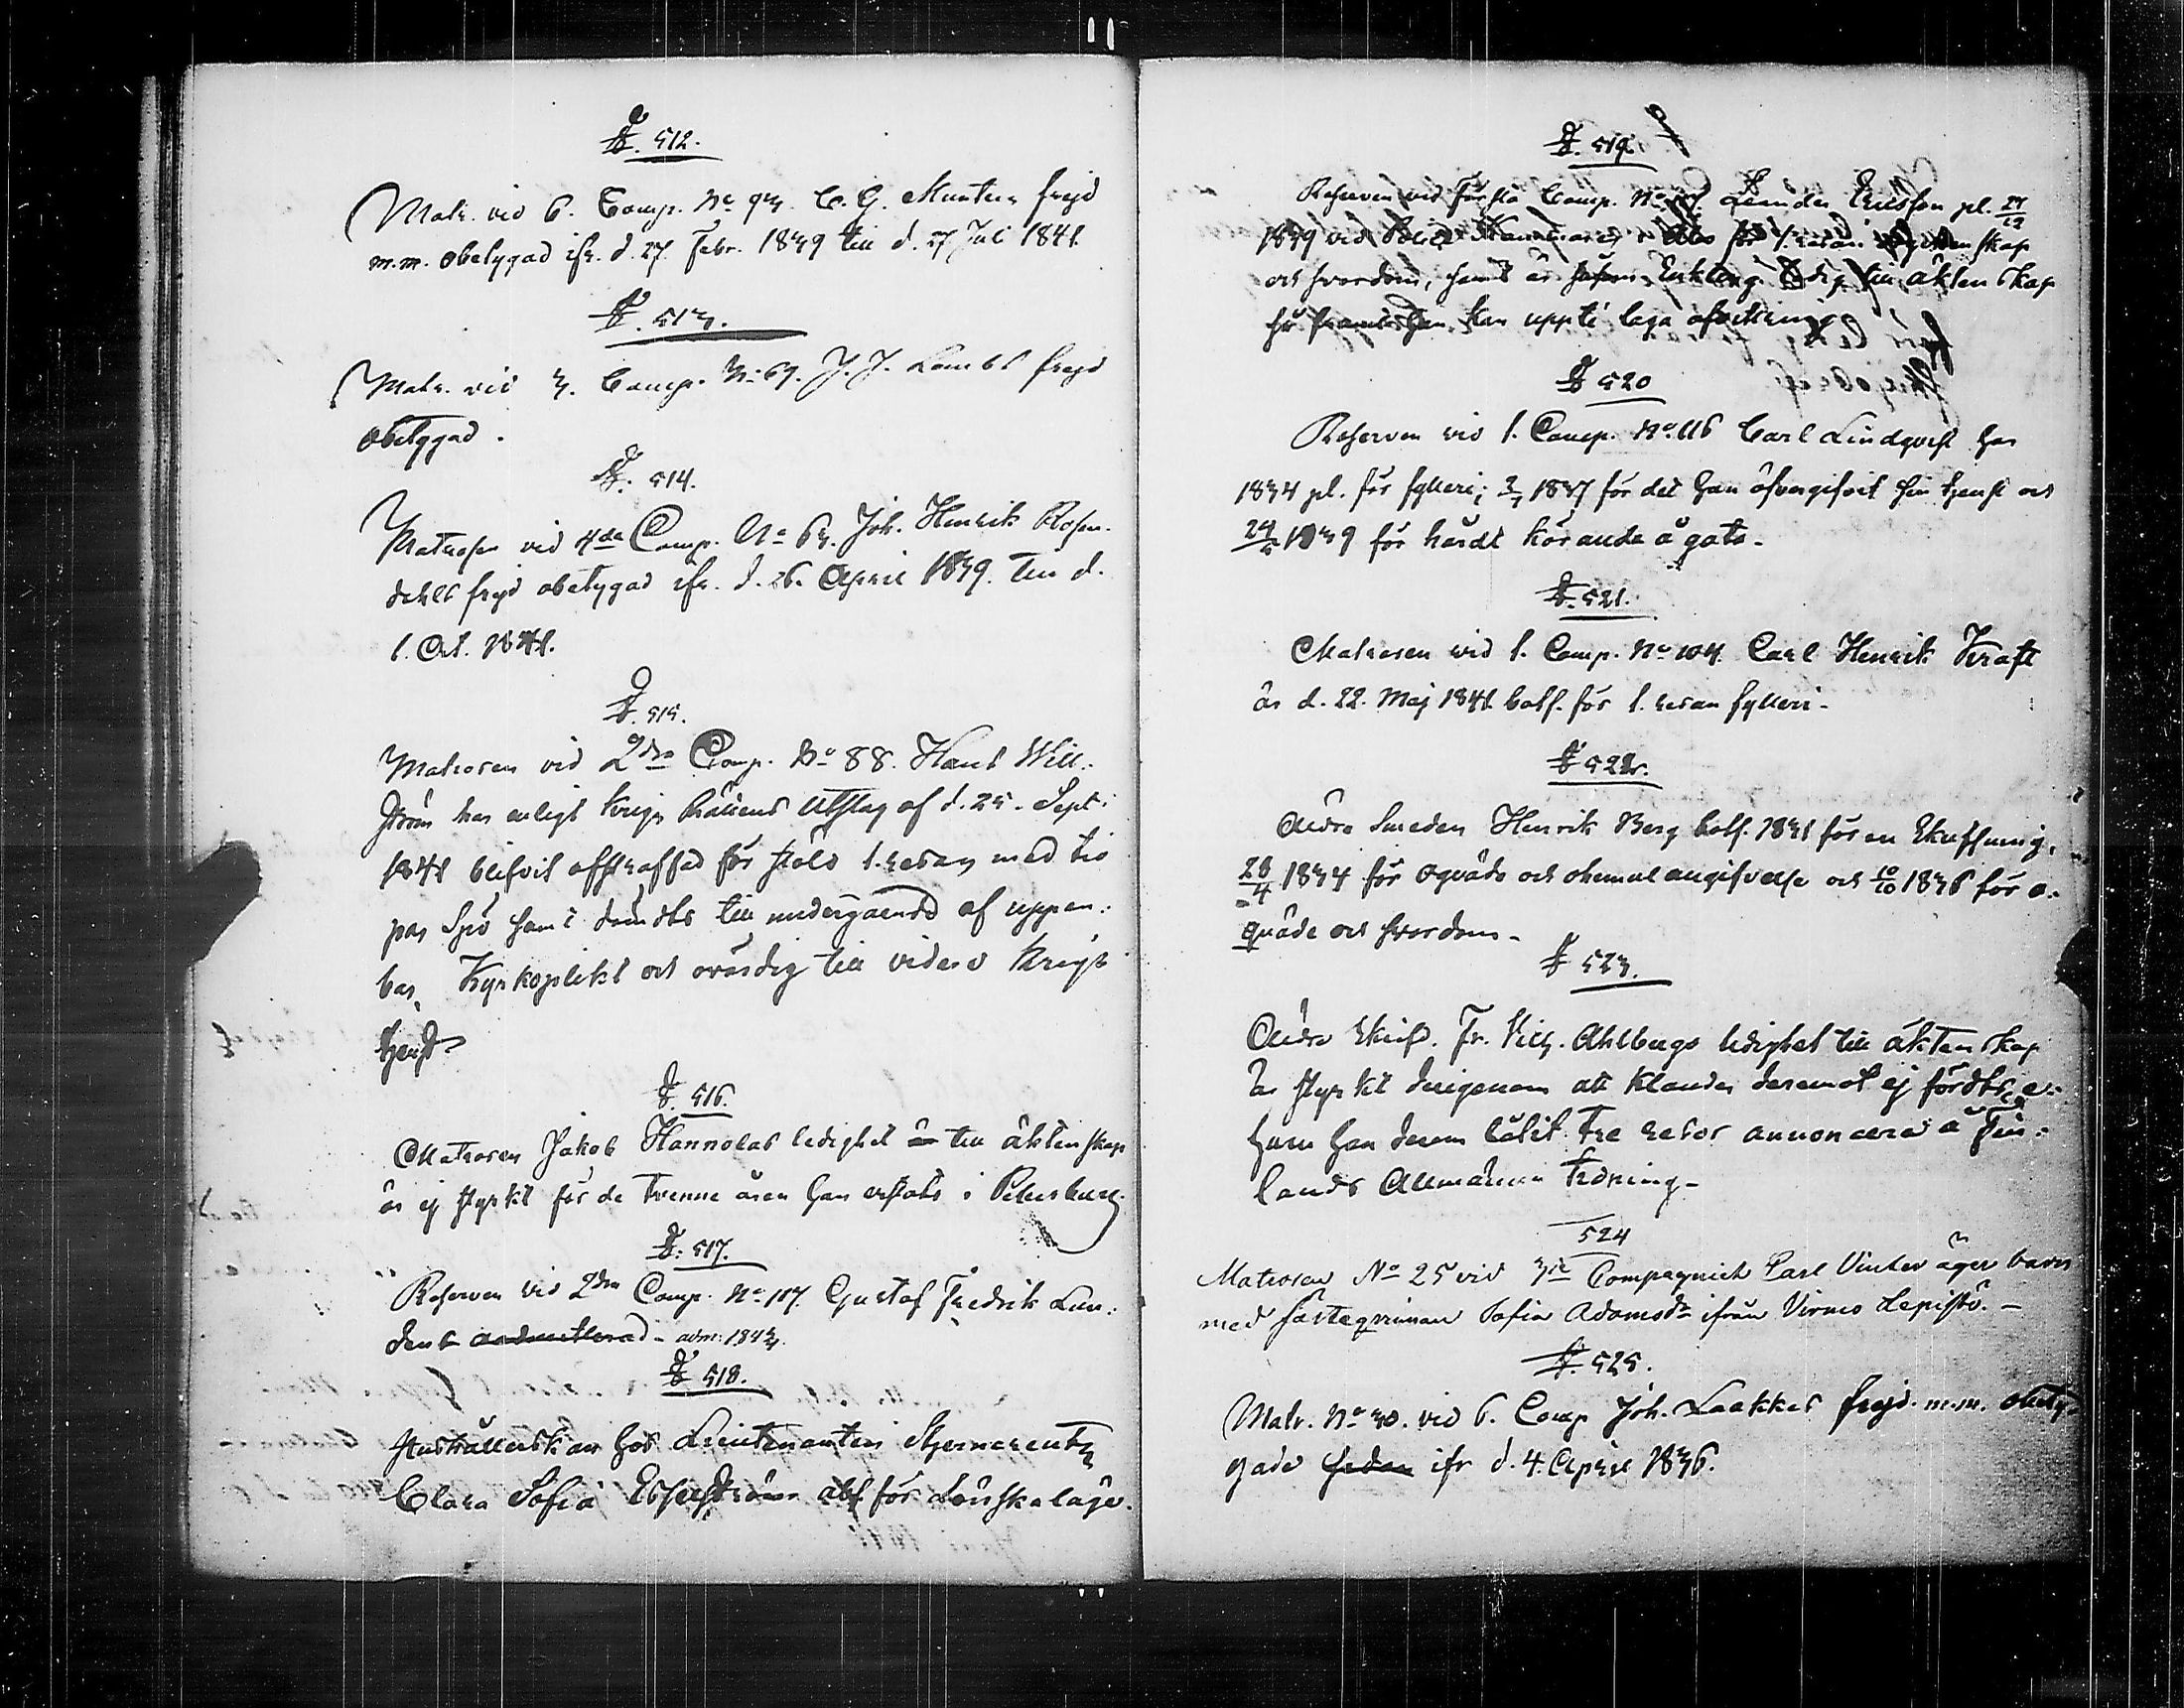 §. 512.
Matr. vid 6. Comp. No 93. C. G. Munters frejd
m.m. obetygad ifr. d. 27. Febr. 1839 till d. 27 Juli 1841.
§. 513.
Matr. vid 3. Comp. No 69. J. J. Lambs frejd
obetygad.
§. 514.
Matrosen vid 4de Comp. No 63. Joh. Henrik Rosen-
dahls frejd obetygad ifr. d. 26. April 1839. till d.
1. Oct. 1841.
§. 515.
Matrosen vid 2dra Comp. No 88. Hans Will-
ström har enligt Krigs Rättens Utslag af d. 25. Sept.
1841 blifvit afstraffad för stöld 1. resan med tio
par Spö samt dömdts till undergående af uppen-
bar Kyrkoplikt och ovärdig till vidare Krigs
tjenst
§. 516.
Matrosen Jakob Hannolas ledighet till äktenskap
är ej styrkt för de tvenne åren han vistats i Petersburg.
§. 517.
Reserven vid 2dra Comp. No 117. Gustaf Fredrik Lin-
dens admitterad - adm. 1843.
§ 518.
Hushållerskan hos Lieutenanten Stjerncreutz
Clara Sofia abs. för Lönskaläge.
§. 519.
Reserven vid Första Comp. No Leander Ericsson pl. 
1839 vid Police Kammaren i Åbo för 1. resan
och svordom, samt är Enkling. Ledig till äktenskap
han kan uppte laga afvittring
§ 520
Reserven vid 1. Comp. No 116 Carl Lindqvist har
1834 pl. för fylleri; 3/7 1837 för det han öfvergifvit sin tjenst och
24/5 1839 för hårdt körande å gata.
§. 521.
Matrosen vid 1. Comp. No 104. Carl Henrik Kraft
är d. 22. Maj 1841 botf. för 1. resan fylleri.
§ 522.
Andre Smeden Henrik Berg botf. 1831 för en Skuffning,
28/4 1834 för oqväde och ohemul angifvelse och 10/10 1836 för o-
qväde och svordom.
§ 523.
Andre Skrifv. Fr. Vilh. Ahlbergs ledighet till äktenskap
är styrkt derigenom att klander deremot ej fördts, e-
huru han derom låtit tre resor annoncera å Fin-
lands Allmänna Tidning.
524
Matrosen No 25 vid 3je Compagniet Carl Vinter äger barn
med fästeqvinnan Sofia Adamsdr ifrån Virmo Lepistö. -
§. 525.
Matr. No 30. vid 6. Comp Joh. Laakkos frejd m.m. obety-
gade sedan ifr d. 4. April 1836.